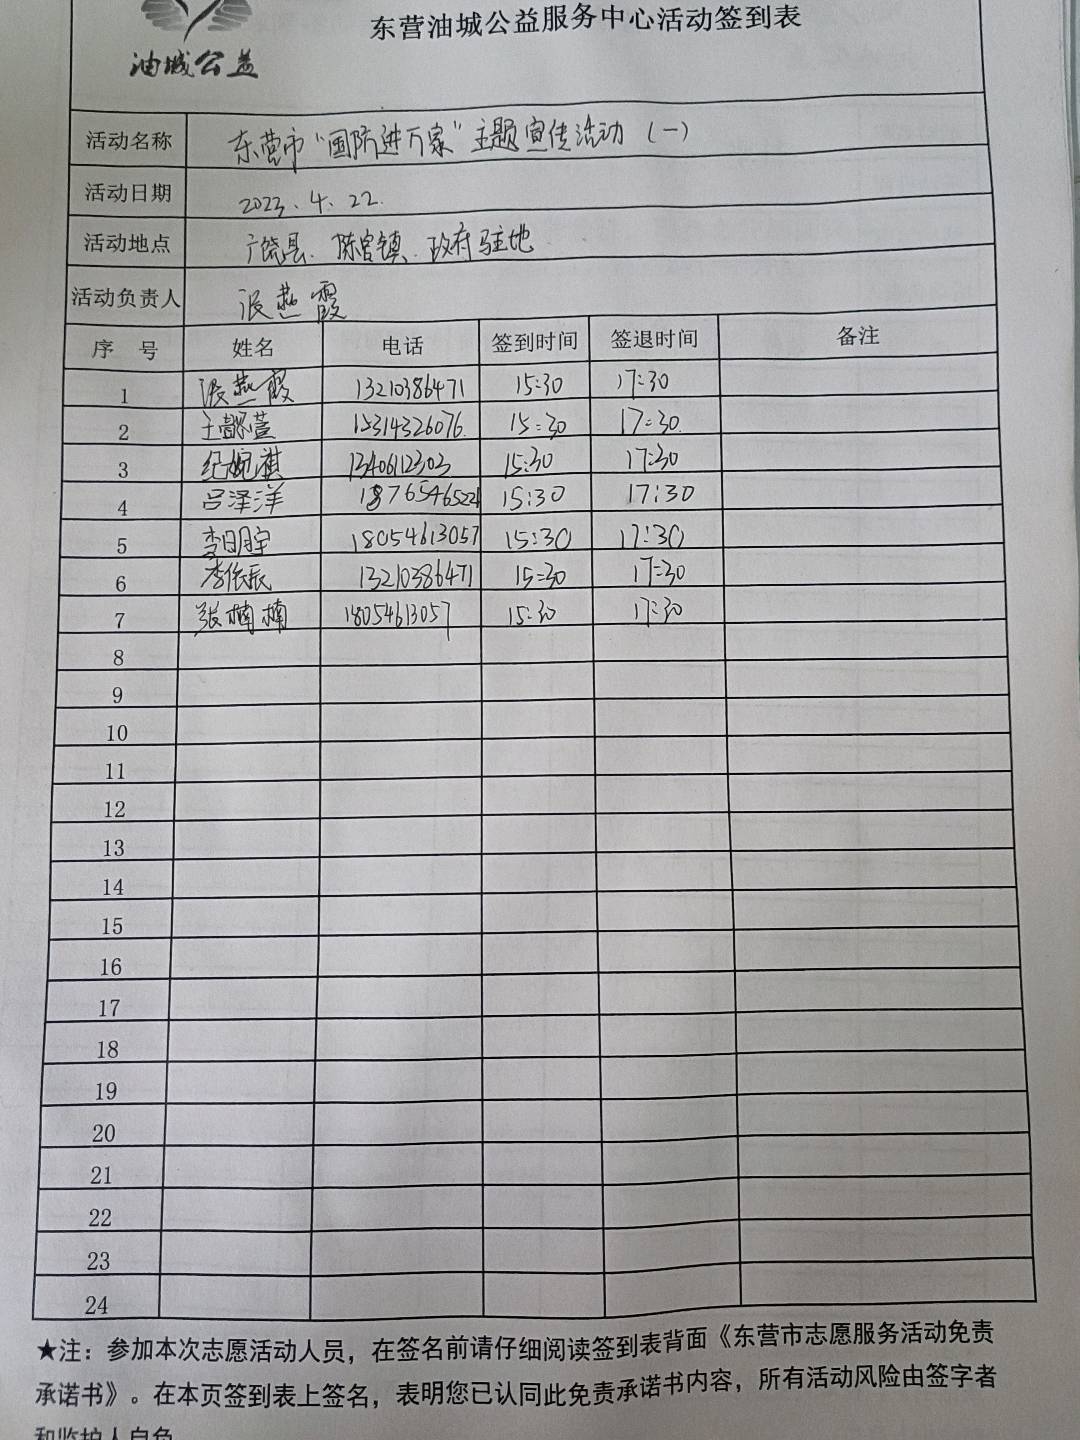 油城公益
东营油城公益服务中心活动签到表
活动名称 东营市“国防进万家”主题宣传活动（一）
活动日期 2023.4.22.
活动地点 广饶县、陈官镇、政府驻地
活动负责人 燕霞
序号 姓名 电话 签到时间 签退时间 备注
1 燕霞 13210386471 15:30 17:30
2 王懿萱 15314326076. 15:30 17:30.
3 纪婉祺 1340612303 15:30 17:30
4 吕泽洋 1876546522 15:30 17:30
5 李明宇 18054613057 15:30 17:30
6 李依辰 13210386471 15:30 17:30
7 张楠楠 18054613057 15:30 17:30
8
9
10
11
12
13
14
15
16
17
18
19
20
21
22
23
24
★注：参加本次志愿活动人员，在签名前请仔细阅读签到表背面《东营市志愿服务活动免责
承诺书》。在本页签到表上签名，表明您已认同此免责承诺书内容，所有活动风险由签字者
和监护人自负